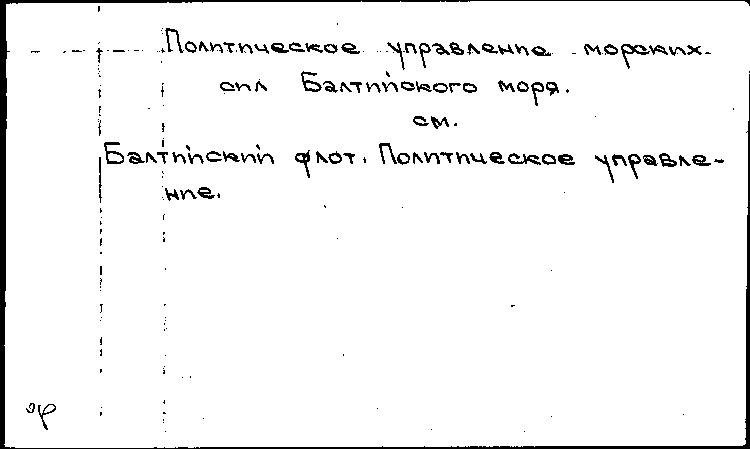 Политическое управление морских
сил Балтийского моря.
см.
Балтийский флот. Политическое управле-
ние.